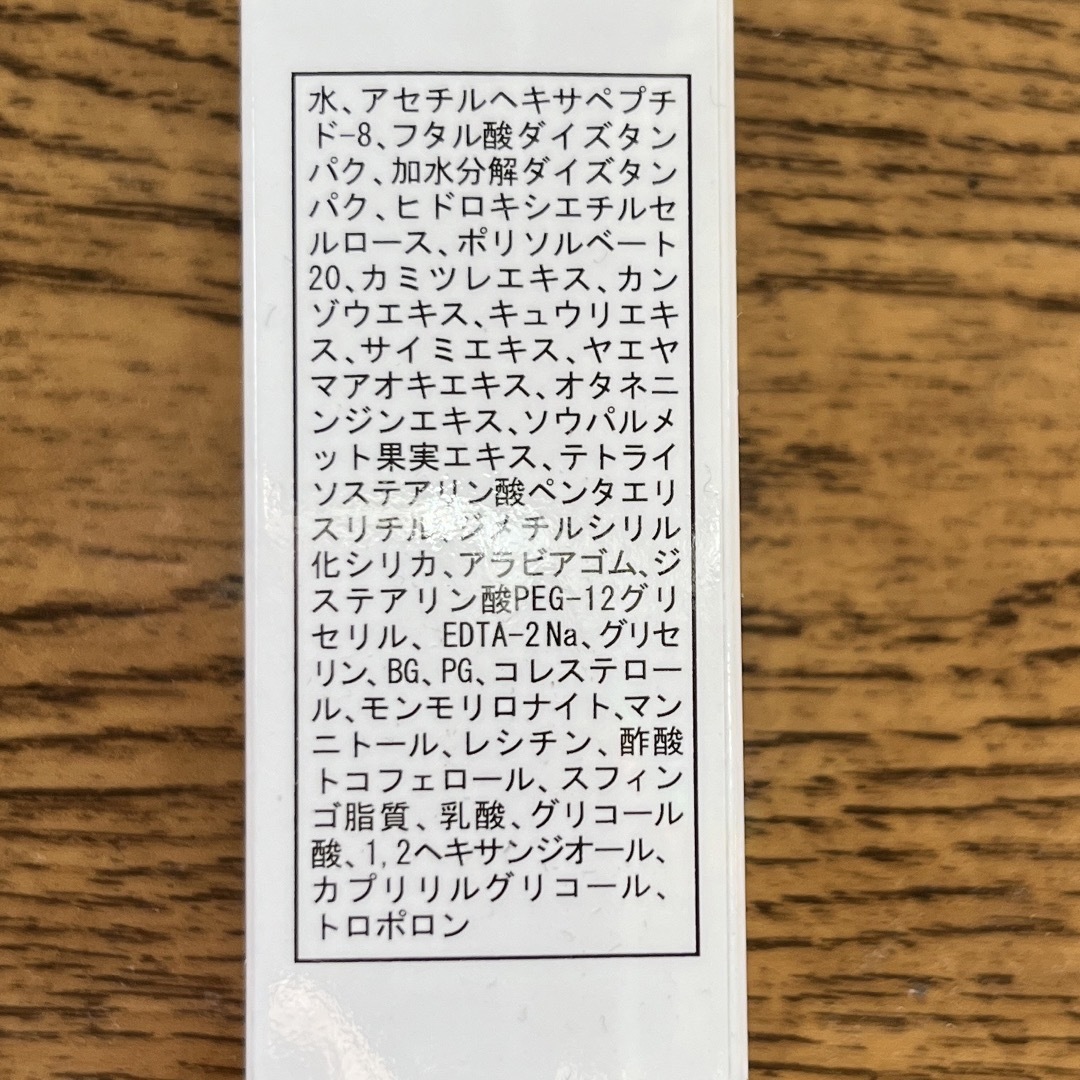 水、アセチルヘキサペプチ
ド-8、フタル酸ダイズタン
パク、加水分解ダイズタン
パク、ヒドロキシエチルセ
ルロース、ポリソルベート
20、カミツレエキス、カン
ゾウエキス、キュウリエキ
ス、サイミエキス、ヤエヤ
マアオキエキス、オタネニ
ンジンエキス、ソウパルメ
ット果実エキス、テトライ
ソステアリン酸ペンタエリ
スリチル、ジメチルシリル
化シリカ、アラビアゴム、ジ
ステアリン酸PEG-12グリ
セリル、EDTA-2Na、グリセ
リン、BG、PG、コレステロー
ル、モンモリロナイト、マン
ニトール、レシチン、酢酸
トコフェロール、スフィン
ゴ脂質、乳酸、グリコール
酸、1,2ヘキサンジオール、
カプリリルグリコール、
トロポロン